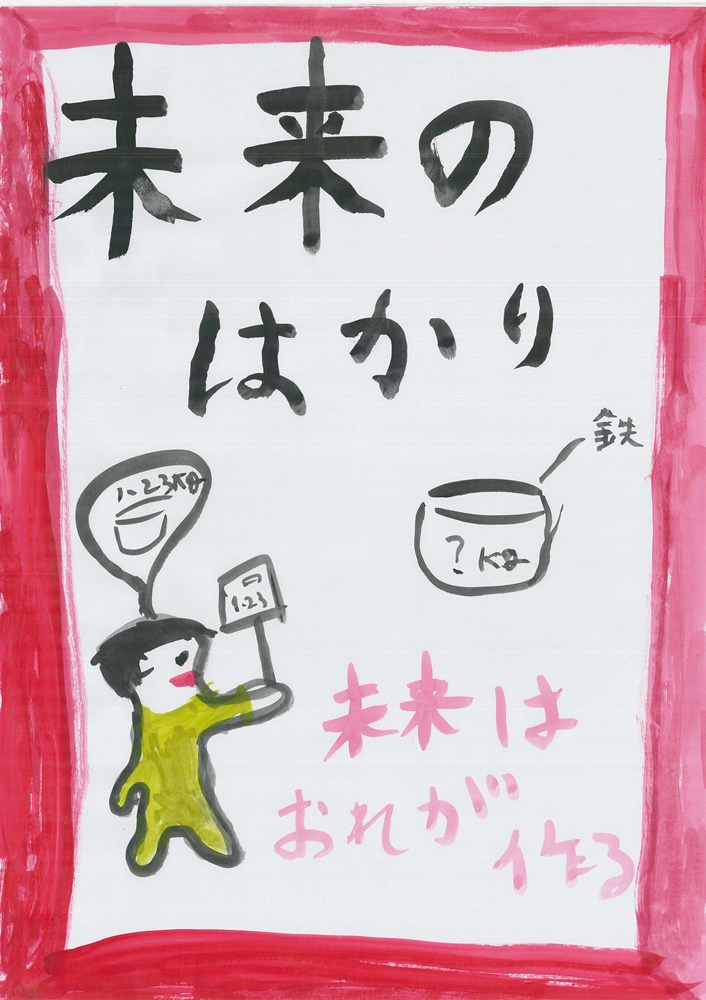 未来の
はかり
鉄
1.23kg
1.23
?kg
未来は
おれが
作る